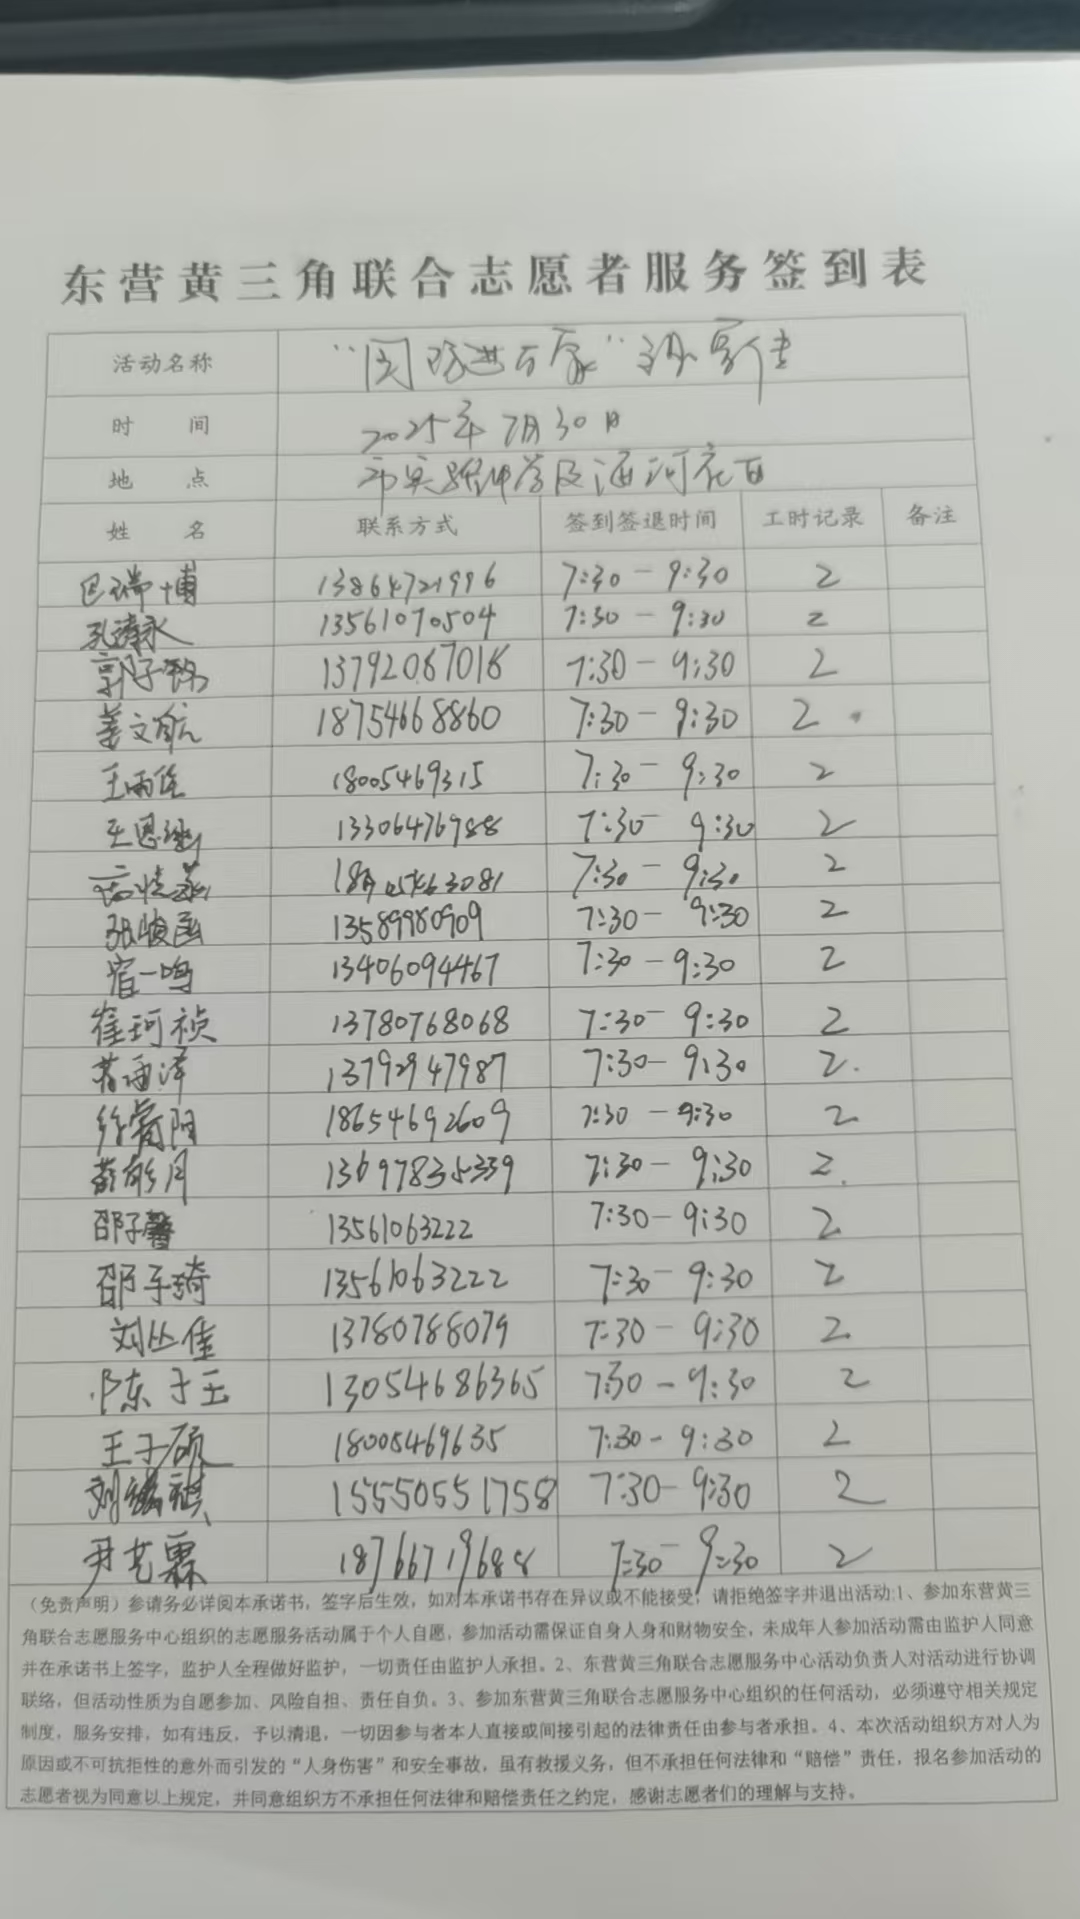 东营黄三角联合志愿者服务签到表
活动名称 “国防进万家”
时 间 2025年7月30日
地 点 市实验中学及海河花园
姓 名 联系方式 签到签退时间 工时记录 备注
巴瑞博 13864721996 7:30-9:30 2
孔 永 13561070504 7:30-9:30 2
郭子 13792087018 7:30-9:30 2
姜文航 18754668860 7:30-9:30 2
王雨佳 18005469315 7:30-9:30 2
王思涵 13306476988 7:30-9:30 2
7:30-9:30 2
张峻函 13589980909 7:30-9:30 2
宿一鸣 13406094467 7:30-9:30 2
崔珂祯 13780768068 7:30-9:30 2
泽 13792947987 7:30-9:30 2
徐 阳 18654692609 7:30-9:30 2
月 13697835339 7:30-9:30 2
邵子馨 13561063222 7:30-9:30 2
邵子琦 13561063222 7:30-9:30 2
刘丛佳 13780788079 7:30-9:30 2
陈于玉 13054686365 7:30-9:30 2
王子硕 18005469635 7:30-9:30 2
刘 祺 15550551758 7:30-9:30 2
尹艺霖 18766719688 7:30-9:30 2
（免责声明）参请务必详阅本承诺书，签字后生效，如对本承诺书存在异议或不能接受，请拒绝签字并退出活动:1、参加东营黄三
角联合志愿服务中心组织的志愿服务活动属于个人自愿，参加活动需保证自身人身和财物安全，未成年人参加活动需由监护人同意
并在承诺书上签字，监护人全程做好监护，一切责任由监护人承担。2、东营黄三角联合志愿服务中心活动负责人对活动进行协调
联络，但活动性质为自愿参加、风险自担、责任自负。3、参加东营黄三角联合志愿服务中心组织的任何活动，必须遵守相关规定
制度，服务安排，如有违反，予以清退，一切因参与者本人直接或间接引起的法律责任由参与者承担。4、本次活动组织方对人为
原因或不可抗拒性的意外而引发的“人身伤害”和安全事故，虽有救援义务，但不承担任何法律和“赔偿”责任，报名参加活动的
志愿者视为同意以上规定，并同意组织方不承担任何法律和赔偿责任之约定，感谢志愿者们的理解与支持。